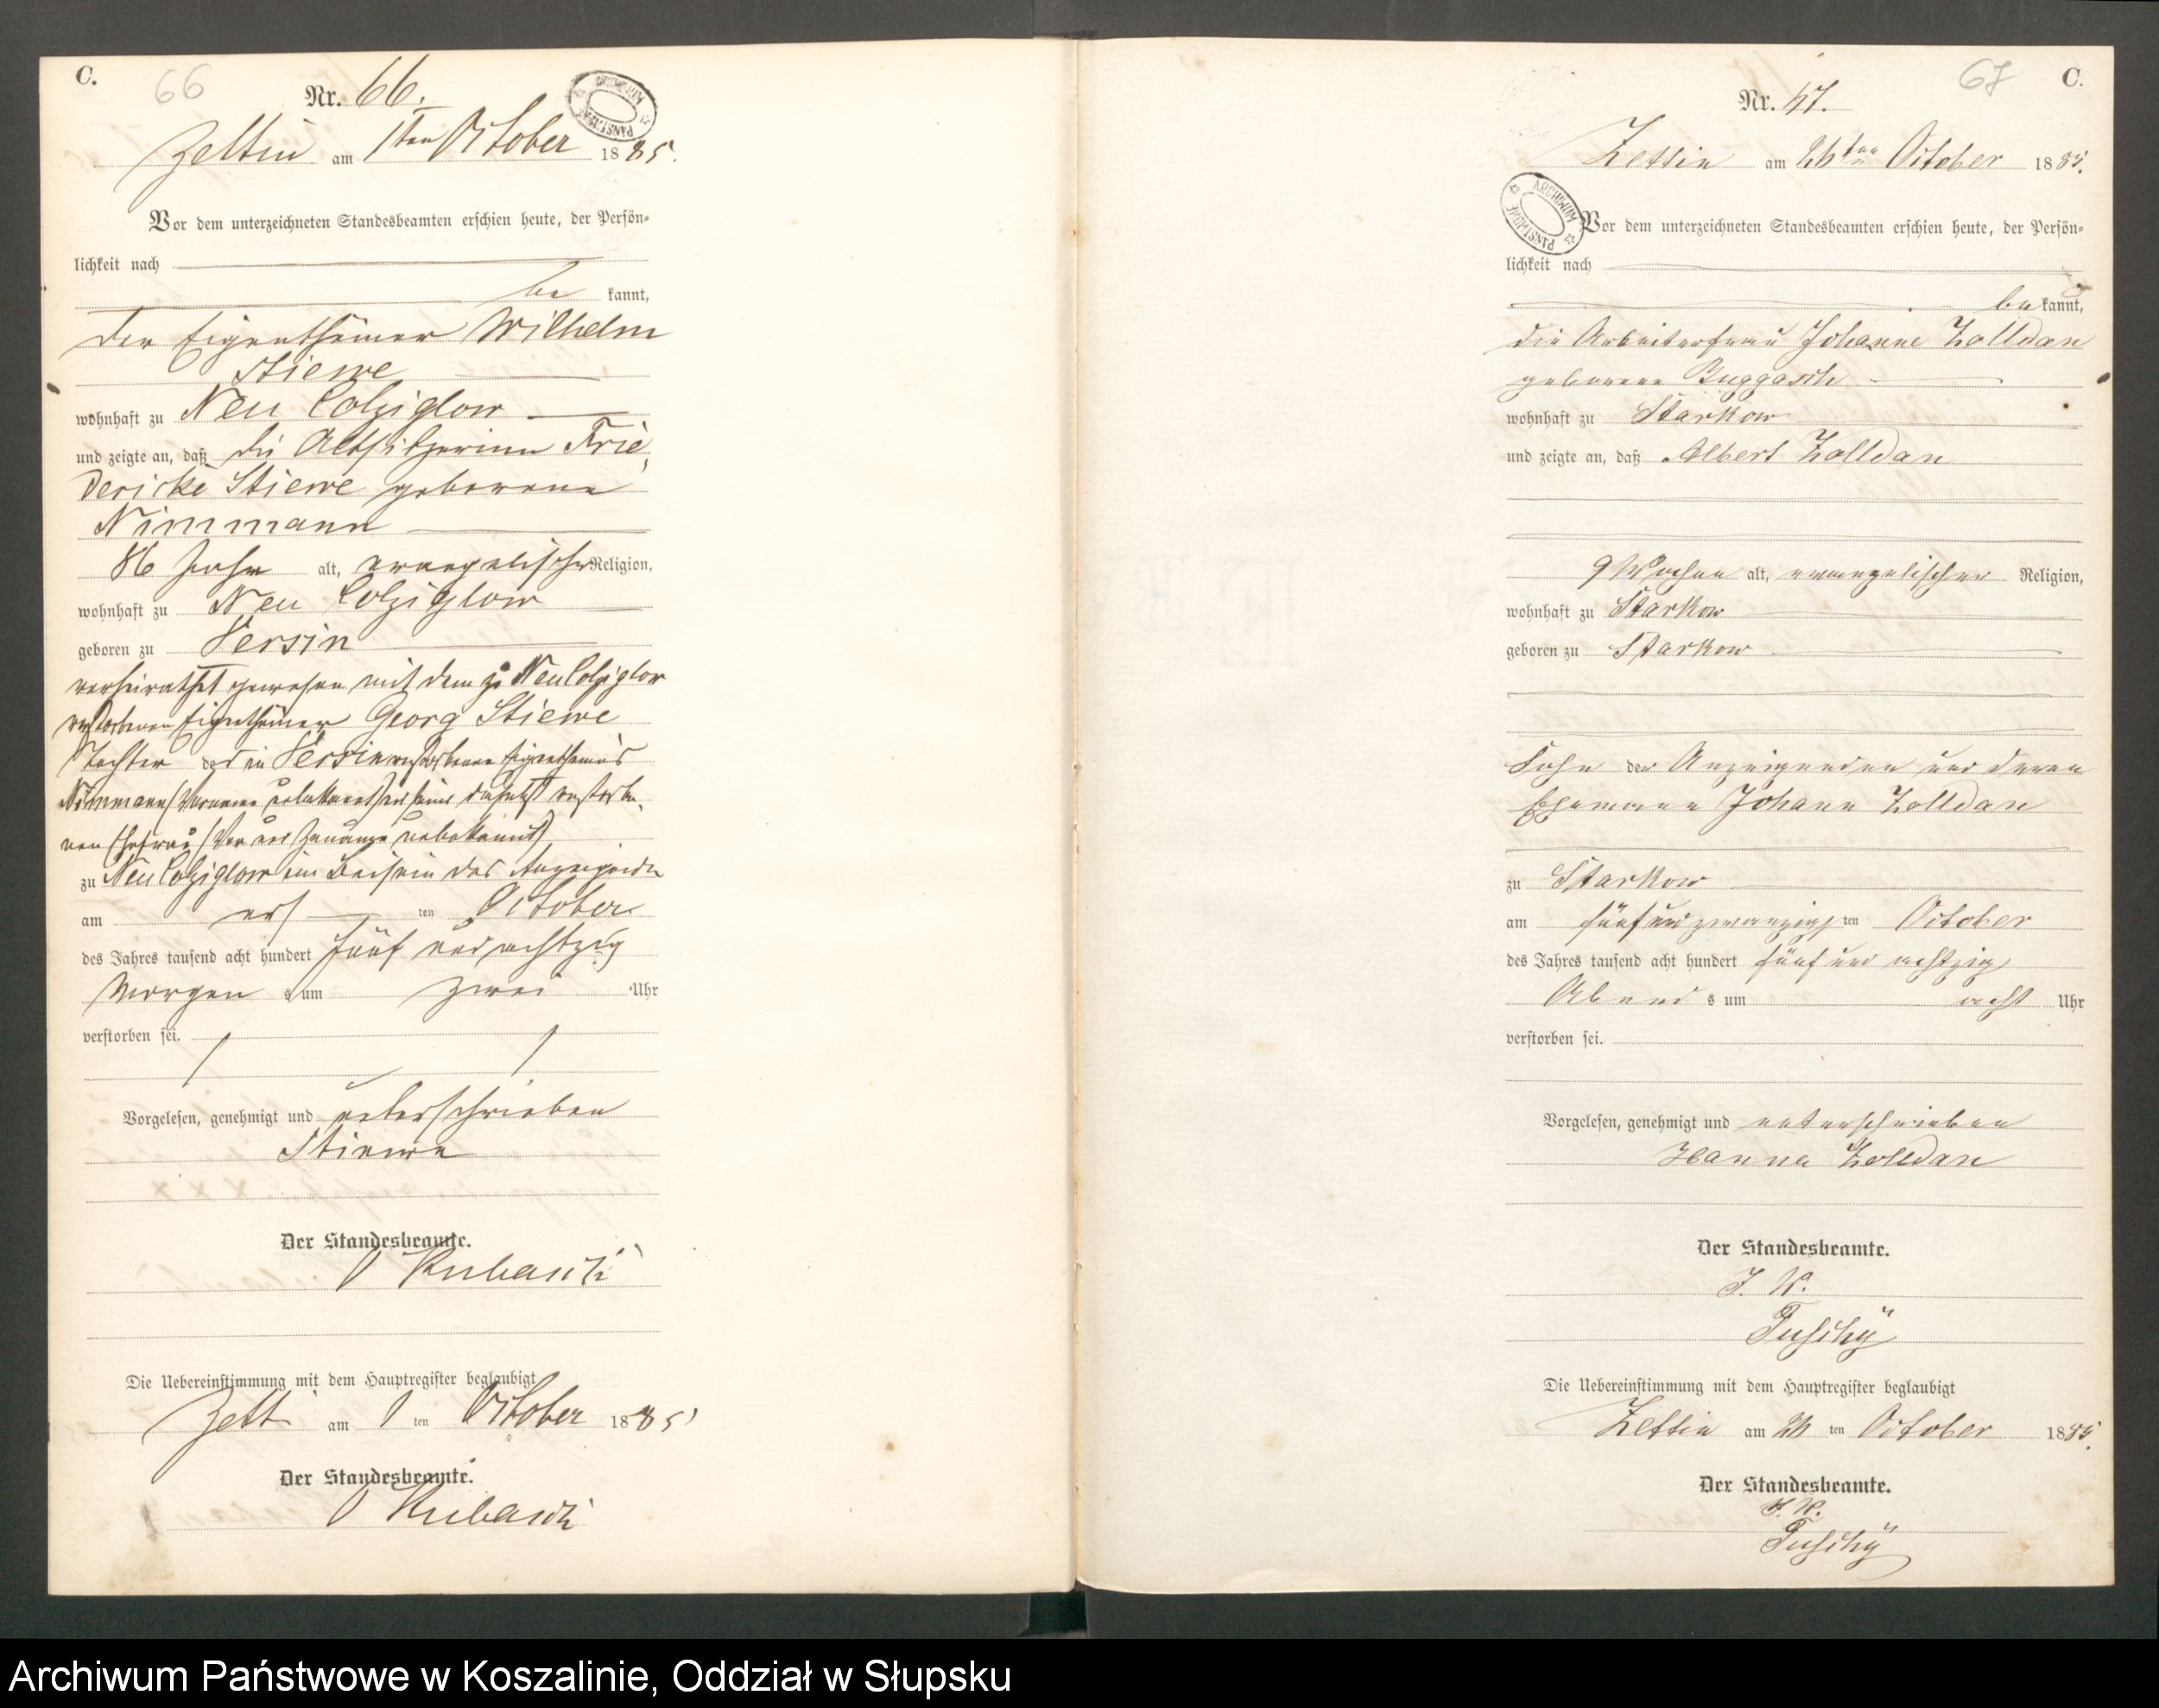 C.
66
Nr. 66.
Zettin am 1ten October 1885.
Vor dem unterzeichneten Standesbeamten erschien heute, der Persön-
lichkeit nach
be kannt,
der Eigenthümer Wilhelm
Stiewe
wohnhaft zu Neu Colziglow
und zeigte an, daß die Altsitzerinn Frie-
dericke Stiewe geborene
Nimmann
86 Jahr alt, evangelischer Religion,
wohnhaft zu Neu Colziglow
geboren zu Versin
verheirathet gewesen mit dem zu Neu Colziglow
verstorbenen Eigenthümer Georg Stiewe
Tochter des in Versin verstorbenen Eigenthümers
Nimmann (Vorname unbekannt) und seiner daselbst verstorbe-
nen Ehefrau (Vor und Zuname unbekannt)
zu Neu Colziglow im Beisein des Anzeigenden
am ers ten October
des Jahres tausend acht hundert fünf und achtzig
Morgen s um zwei Uhr
verstorben sei.
Vorgelesen, genehmigt und unterschrieben
Stiewe
Der Standesbeamte.
Die Uebereinstimmung mit dem Hauptregister beglaubigt
Zett am 1 ten October 1885
Der Standesbeamte.
67
C.
Nr. 67.
Zettin am 26ten October 1885.
ARCHIWUM PAŃSTWOWE
Vor dem unterzeichneten Standesbeamten erschien heute, der Persön-
lichkeit nach
be kannt,
die Arbeiterfrau Johanne Zolldan
geborene Buggasch
wohnhaft zu Starkow
und zeigte an, daß Albert Zolldan
9 Wochen alt, evangelischer Religion,
wohnhaft zu Starkow
geboren zu Starkow
Sohn der Anzeigenden und deren
Ehemann Johann Zolldan
zu Starkow
am fünfundzwanzigs ten October
des Jahres tausend acht hundert fünf und achtzig
Abend s um acht Uhr
verstorben sei.
Vorgelesen, genehmigt und unterschrieben
Hanna Zolldan
Der Standesbeamte.
J. V.
Die Uebereinstimmung mit dem Hauptregister beglaubigt
Zettin am 26 ten October 1885.
Der Standesbeamte.
J. V.
Archiwum Państwowe w Koszalinie, Oddział w Słupsku